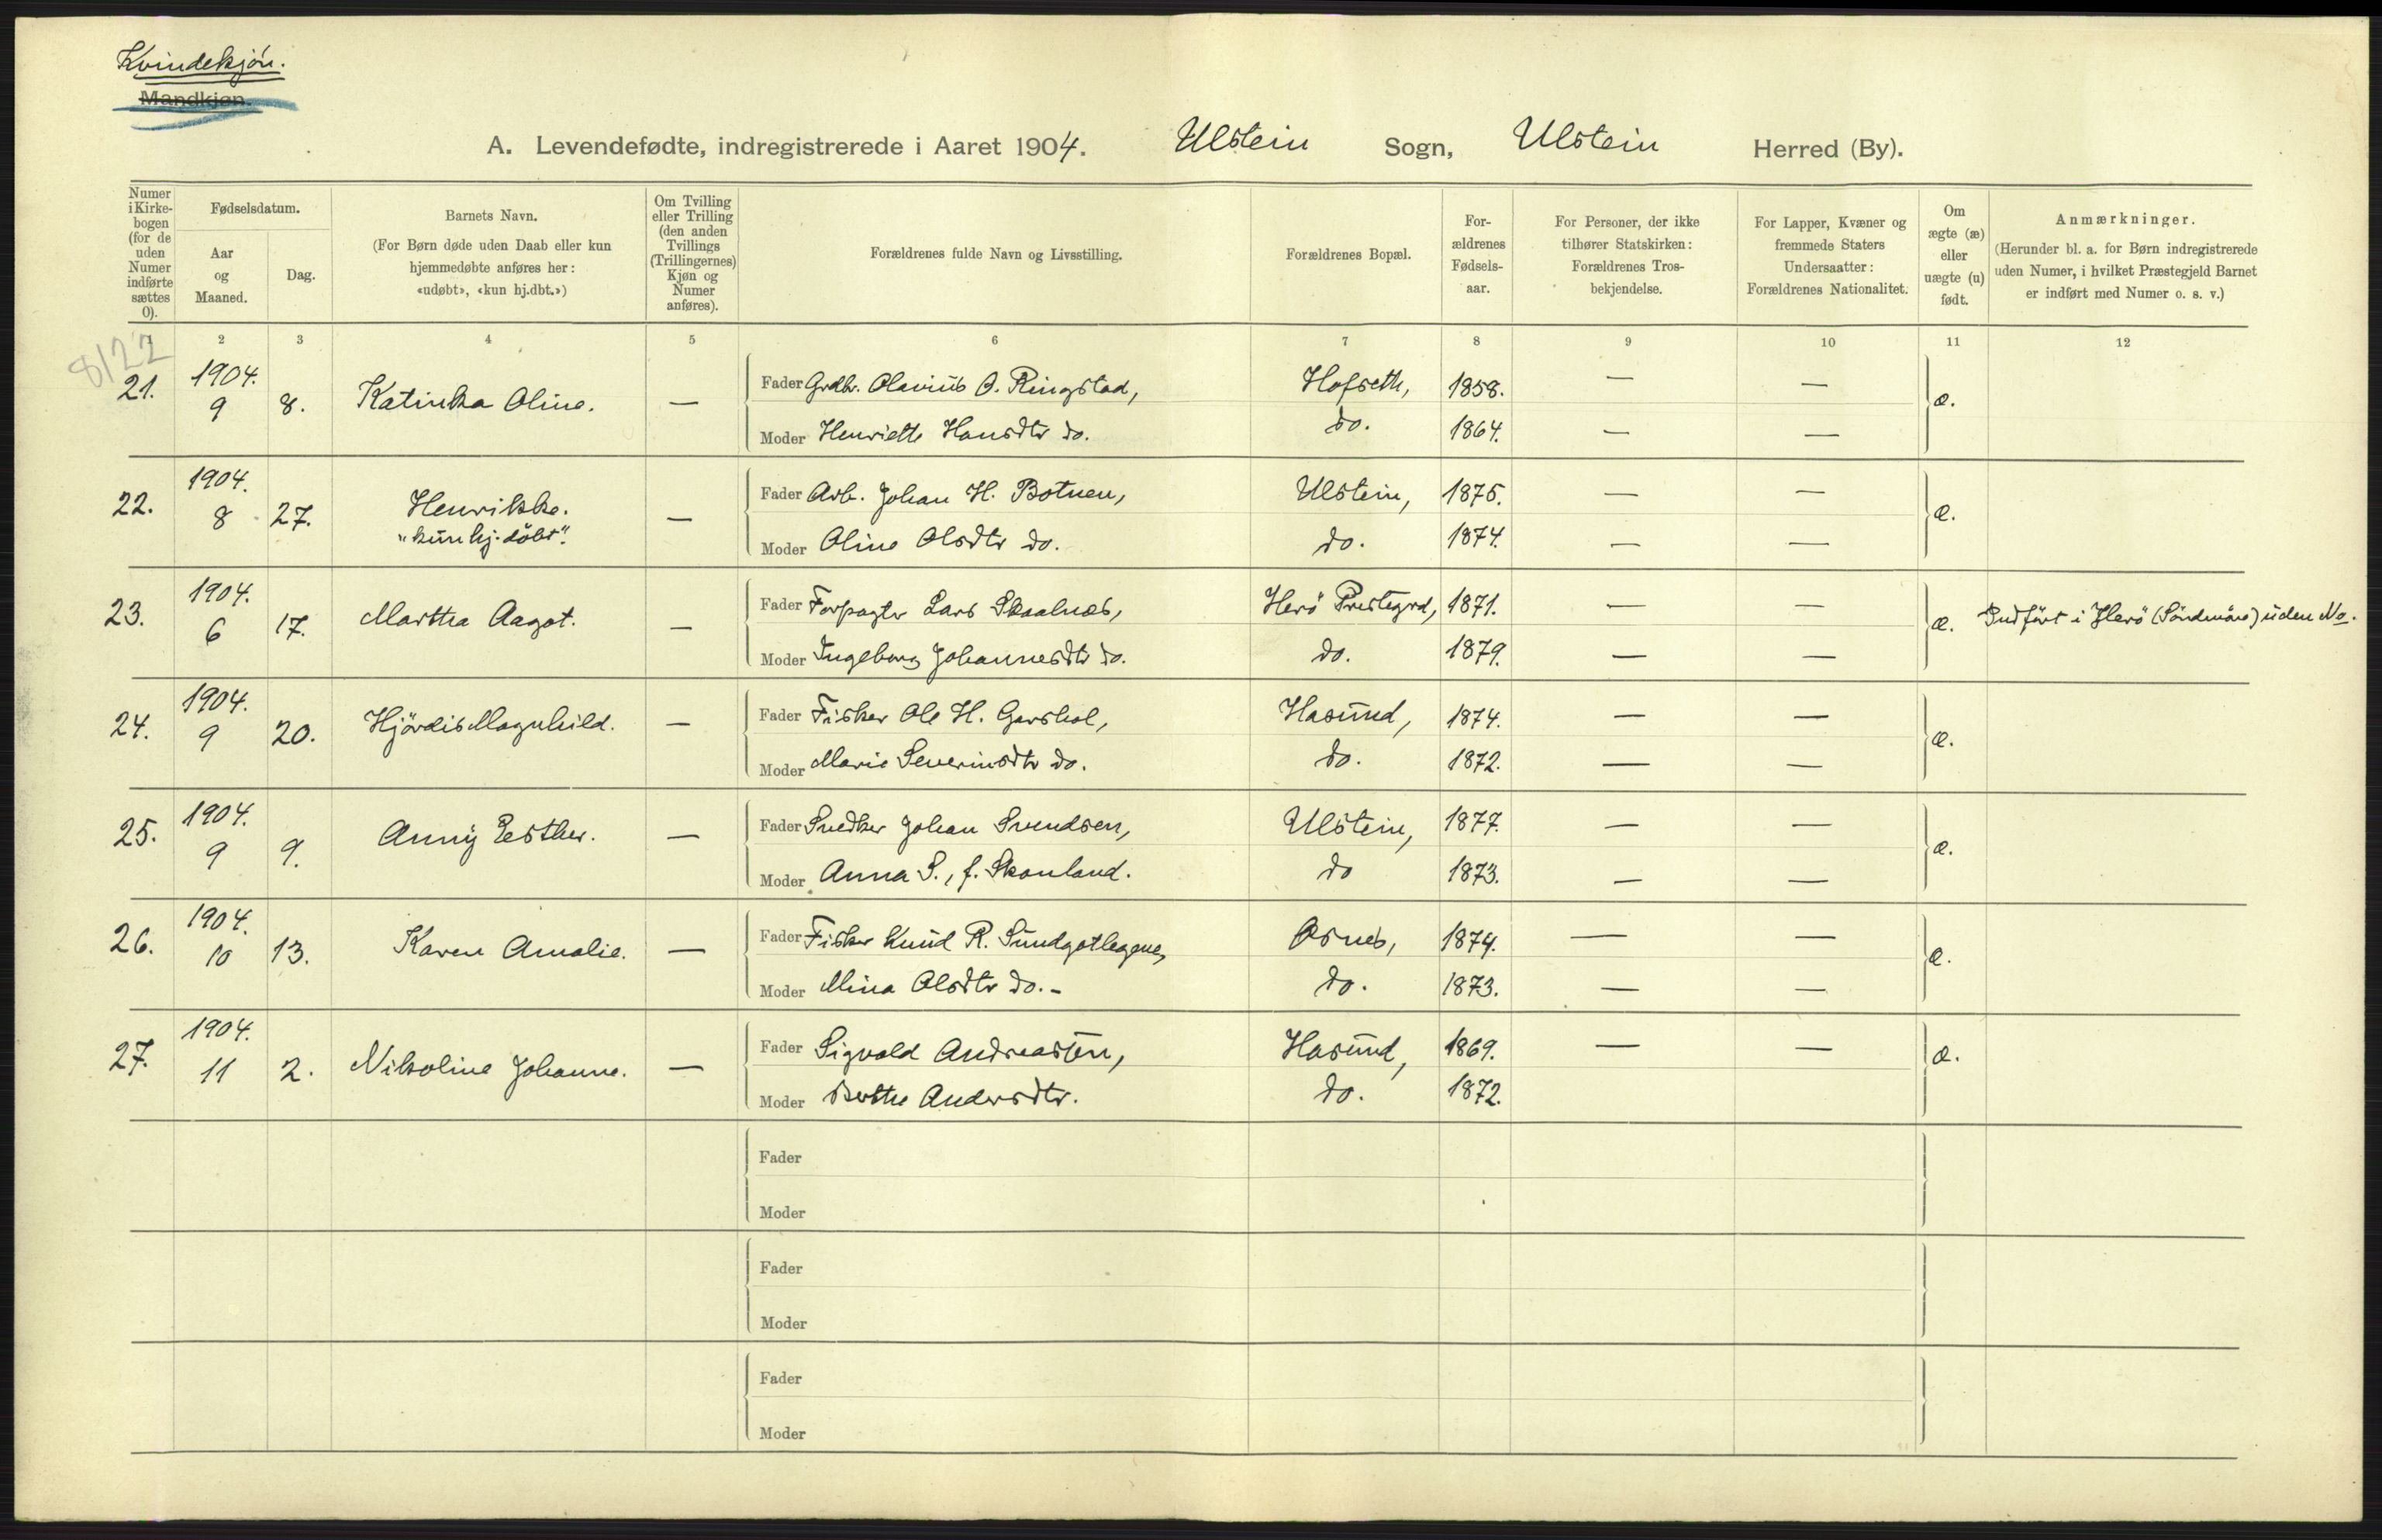 Kvindekjøn.
Mandkjøn.
A. Levendefødte, indregistrerede i Aaret 1904. Ulstein Sogn, Ulstein Herred (By).
Numer i Kirkebogen (for de uden Numer indførte sættes 0).
Fødselsdatum.
Aar og Maaned.
Dag.
Barnets Navn.
(For Børn døde uden Daab eller kun hjemmedøbte anføres her: «udøbt», «kun hj.dbt.»)
Om Tvilling eller Trilling (den anden Tvillings (Trillingernes) Kjøn og Numer anføres).
Forældrenes fulde Navn og Livsstilling.
Forældrenes Bopæl.
For-ældrenes Fødsels-aar.
For Personer, der ikke tilhører Statskirken: Forældrenes Tros-bekjendelse.
For Lapper, Kvæner og fremmede Staters Undersaatter: Forældrenes Nationalitet.
Om ægte (æ) eller uægte (u) født.
Anmærkninger.
(Herunder bl. a. for Børn indregistrerede uden Numer, i hvilket Præstegjeld Barnet er indført med Numer o. s. v.)
1 2 3 4 5 6 7 8 9 10 11 12
8122
21. 1904. 9 8. Katinka Oline. — Fader Grdbr. Olavius O. Ringstad, Hofseth, 1858. — — æ.
Moder Henriette Hansdtr do. do. 1864. — —
22. 1904. 8 27. Henrikke. — Fader Arb. Johan H. Botnen, Ulstein, 1875. — — æ.
"kun hj. döbt". Moder Oline Olsdtr do. do. 1874. — —
23. 1904. 6 17. Martha Aagot. — Fader Forpagter Lars Skaalnes, Herö Prestegrd, 1871. — — æ. Indført i Herö (Söndmöre) uden No.
Moder Ingeborg Johannesdtr do. do. 1879. — —
24. 1904. 9 20. Hjördis Magnhild. — Fader Fisker Ole H. Garshol, Hasund, 1874. — — æ.
Moder Marie Severinsdtr do. do. 1872. — —
25. 1904. 9 9. Anny Esther. — Fader Snedker Johan Svendsen, Ulstein, 1877. — — æ.
Moder Anna S., f. Skonland. do 1873. — —
26. 1904. 10 13. Karen Amalie. — Fader Fisker Knud R. Sundgotlegene, Osnes, 1874. — — æ.
Moder Mina Olsdtr do. - do. 1873. — —
27. 1904. 11 2. Nikoline Johanne. — Fader Sigvald Andreassen, Hasund, 1869. — — æ.
Moder Berthe Andersdtr. do. 1872.
Fader
Moder
Fader
Moder
Fader
Moder